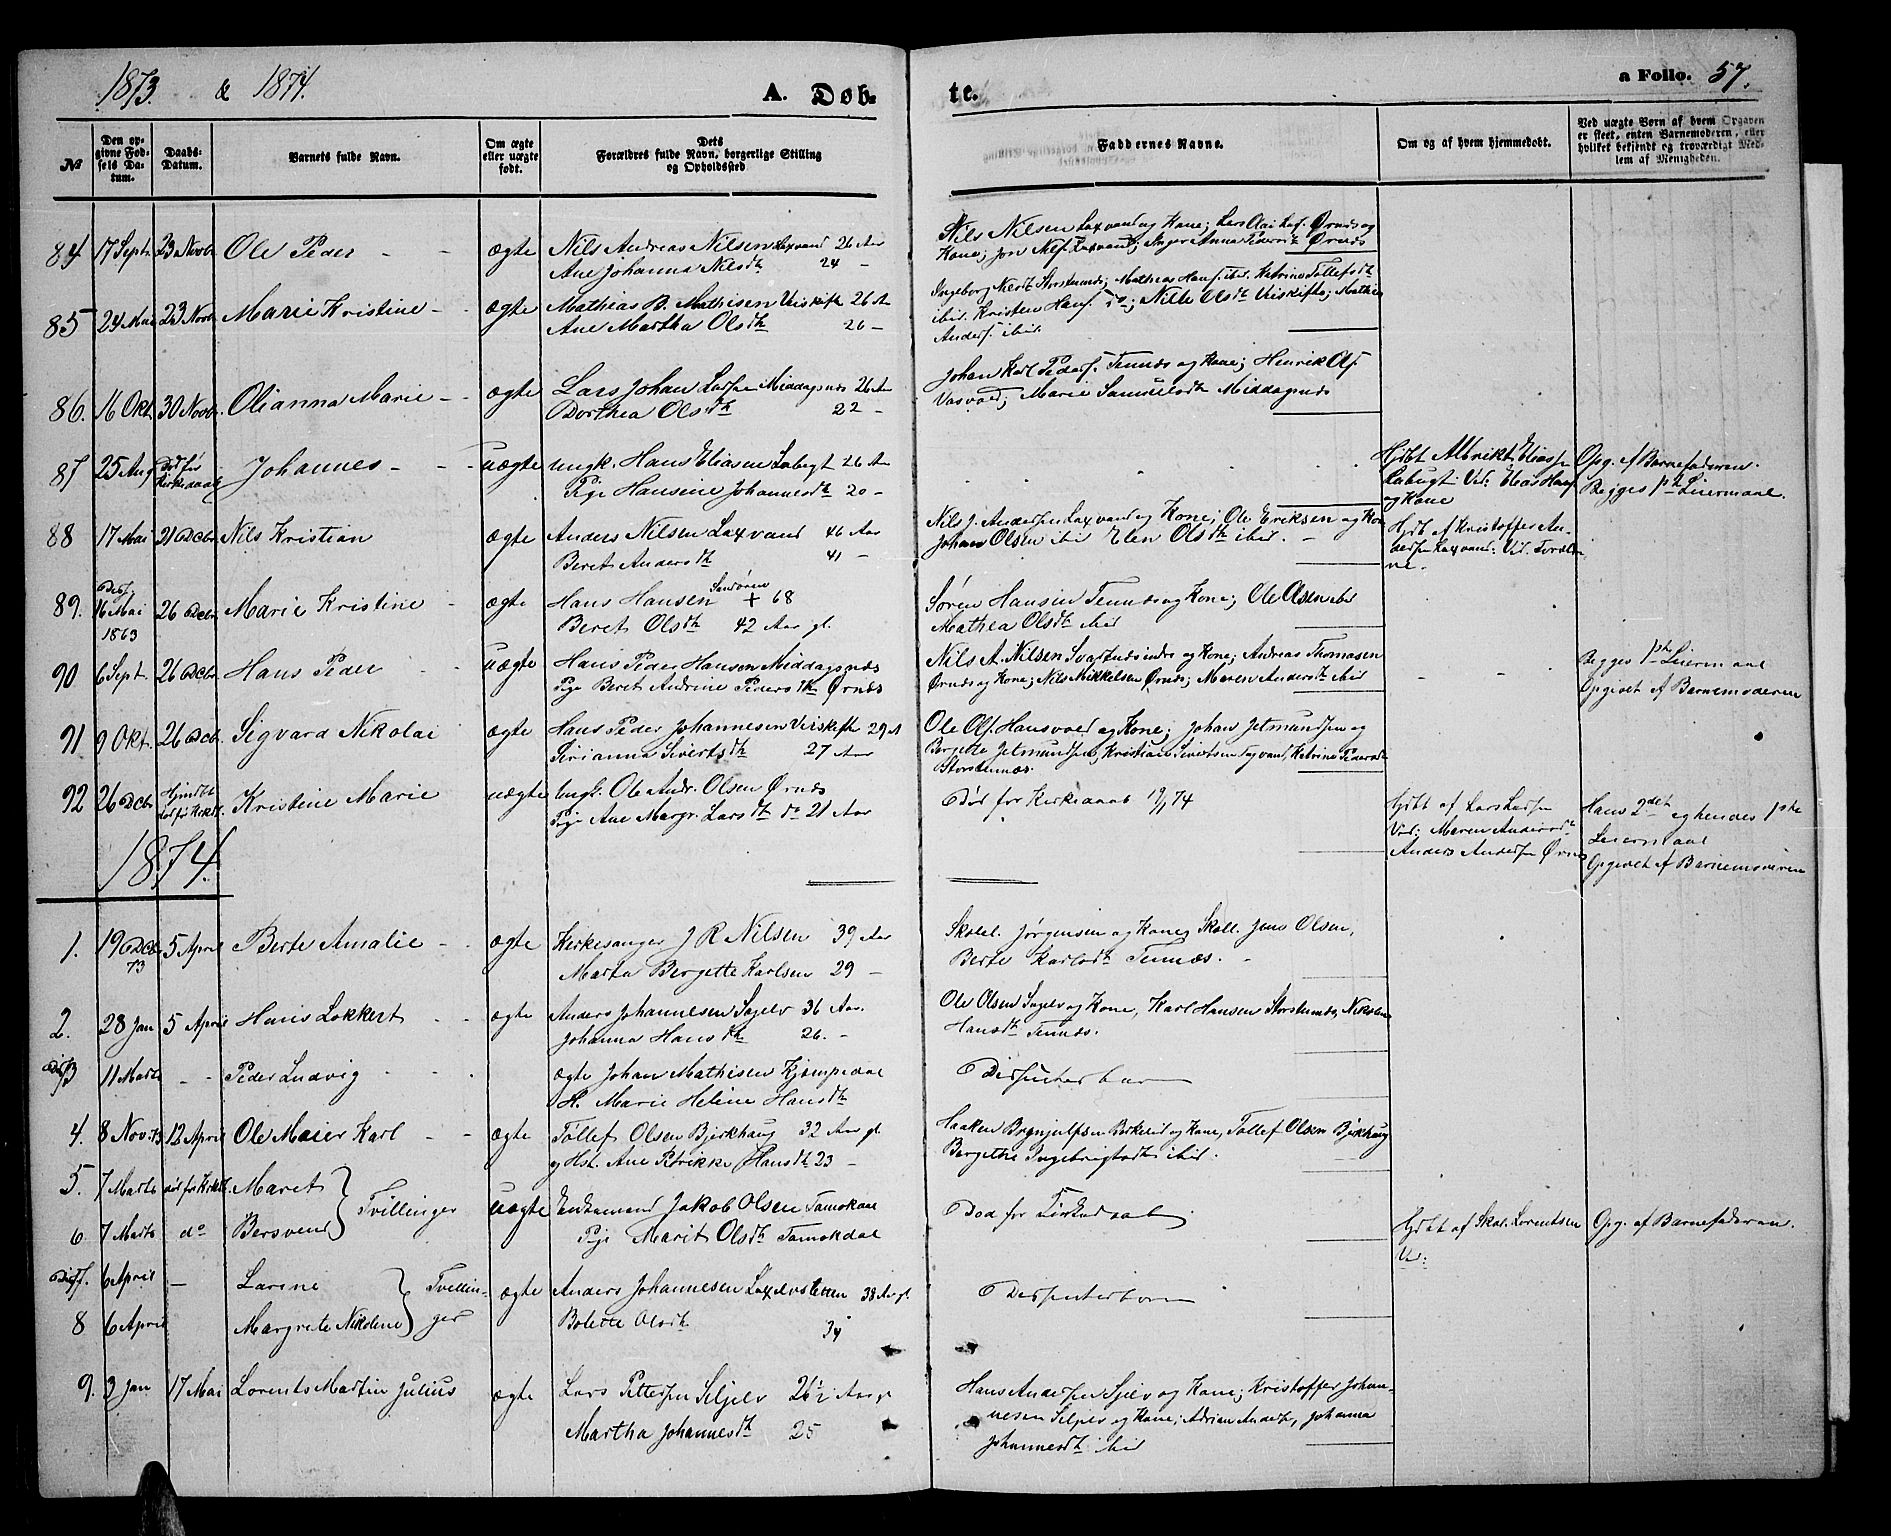 1873. & 1874.
A. Døb-
te.
a Folio. 57.
№
Den op-
givne Fød-
sels Da-
tum.
Daabs-
Datum.
Barnets fulde Navn.
Om ægte
eller uægte
født.
Dets
Forældres fulde Navn, borgerlige Stilling
og Opholdssted
Faddernes Navne.
Om og af hvem hjemmedøbt.
Ved uægte Børn af hvem Opgaven
er skeet, enten Barnemoderen, eller
hvilket bekjendt og troværdigt Med-
lem af Menigheden.
84 17 Sept. 23 Novbr. Ole Peder - - ægte Nils Andreas Nilsen Laxvand 26 Aar
Ane Johanna Nilsdtr 24 -
Nils Nilsen Laxvand og Kone; Lars Ørnæs og
Kone; Jon Laxvand; Inger Anna Ørnæs
85 24 Mai 23 Novbr. Marie Kristine - - ægte Mathias B. Mathisen Veiskifte 26 Aar
Ane Martha Olsdtr 26 -
Ingeborg Storstennæs; Mathias Hansf. ibid. Katrine Tollefsdtr
ibid. Kristen Hansf. do; Olsdtr Veiskifte; Mathis
Andersf. ibid.
86. 16 Okt. 30 Novbr. Olianna Marie - - ægte Lars Johan Larsen Middagsnæs 26 Aar
Dorthea Olsdtr 22 -
Johan Karl Pedersf. Tennæs og Kone; Henrik Olsf
Marie Samuelsdtr Middagsnæs
87 25 Aug Død før
Kirkedaab Johannes - - - uægte ungk. Hans Eliasen Labugt 26 Aar
Pige Hansine Johannesdtr 20 -
Hjdbt Albrikt Eliasen
Labugt. Vid: Elias Hansf
og Kone
Opg. af Barnefaderen.
Begges 1ste Leiermaal.
88 17 Mai 21 Dcbr. Nils Kristian ægte Anders Nilsen Laxvand 46 Aar
Beret Andersdtr 41 -
Nils J. Andersen Laxvand og Kone; Ole Eriksen og Kone
Johan Olsen ibid Elen Olsdtr ibid. -
Hjdbt af Kristoffer An-
dersen Laxvand. Vid. Foræld-
rene.
89. Diss.
16 Mai
1863 26 Dcbr. Marie Kristine - ægte Hans Hansen Sandøren + 68
Beret Olsdtr 42 Aar gl
Søren Hansen Tennæs og Kone; Ole Olsen ibid
Mathea Olsdtr ibid
90 6 Sept. 26 Dcbr. Hans Peder - - uægte Hans Peder Hansen Middagsnæs
Pige Beret Andrine Pedersdtr Ørnæs
Nils A. Nilsen Svartnæs og Kone; Andreas Thomasen
Ørnæs og Kone; Nils Mikkelsen Ørnæs; Maren Andersdtr ibid
Begges 1ste Leiermaal
Opgivet af Barnemoderen
91 9 Okt. 26 Dcbr. Sigvard Nikolai ægte Hans Peder Johannesen Veiskifte 29 A
Sirianna Sivertsdtr 27 Aar
Ole Olsf. Hansvold og Kone; Johan Jetmundsen og
Bergitte Jetmundsen, Kristian Sivertsen Sagvand, Katrine Pedersdtr
Storstennæs.
92 26 Dcbr Hjmdbt
død før Kirkd. Kristine Marie uægte Ungk. Ole Andr. Olsen Ørnæs
Pige Ane Margr. Larsdtr do 21 Aar
Død før Kirkedaab 74
Hjdbt af Lars Larsen
Vid: Maren Andersdtr
Anders Andersen Ørnæs
Hans 2det og hendes 1ste
Leiermaal
Opgivet af Barnemoderen
1874.
1. 19 Dcbr
73 5 April Berte Amalie - - ægte Kirkesanger J R Nilsen 39 Aar
Marta Bergette Karlsen 29 -
Skolel. Jørgensen og Kone, Skoll. Jens Olsen,
Berte Karlsdtr Tennæs. -
2. 28 Jan 5 April Hans Lokkert - - ægte Anders Johannesen Sagelv 36 Aar.
Johanna Hansdtr 26. -
Ole Olsen Sagelv og Kone, Karl Hansen Storstennæs, Nikoline
Hansdtr Tennæs.
Diss. 3 11 Marts - - Peder Ludvig - - - ægte Johan Mathisen Kjempedal
H. Marie Helene Hansdtr
Dissenterbarn
4. 8 Nov. 73 12 April Ole Meier Karl - - ægte Tollef Olsen Bjerkhaug 32 Aar gl
og Hst. Ane Rikke Hansdtr 23 -
Haaken Brynjulfsen og Kone, Tollef Olsen Bjerkhaug
Bergethe Ingebrigtsdtr ibid.
5. 7 Marts død før Kirkd. Maret } Tvillinger uægte Enkemand Jakob Olsen Tamokdal
6. 7 Marts do Bersvend Pige Marit Olsdtr Tamokdal
Død før Kirkedaab
Hjdbt af Skol. Lorentsen
Vid:
Opg. af Barnefaderen.
Diss. 7. 6 April - Larine } Tvillin- ægte Anders Johannesen Laxelvsletten 38 Aar gl.
8 6 April Margrete Nikoline ger Bolette Olsdtr 34
Dissenterbørn
9. 3 Jan 17 Mai Lorents Martin Julius ægte Lars Pettersen Seljelv 26½ Aar gl
Martha Johannesdtr 25
Hans Andersen Sjelv og Kone; Kristoffer Johan-
nesen Seljelv og Kone; Adrian Anders, Johanna
Johannesdtr ibid